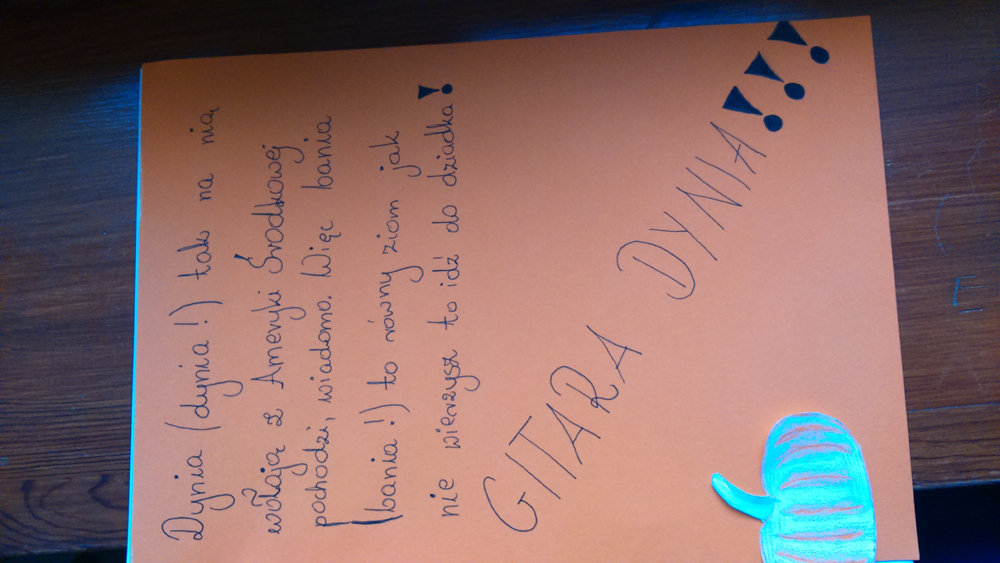 Dynia (dynia!) tak na nią
wołają z Ameryki Środkowej
pochodzi, wiadomo. Więc bania
(bania!) to równy ziom jak
nie wierzysz to idź do dziadka!
GITARA DYNIA!!!